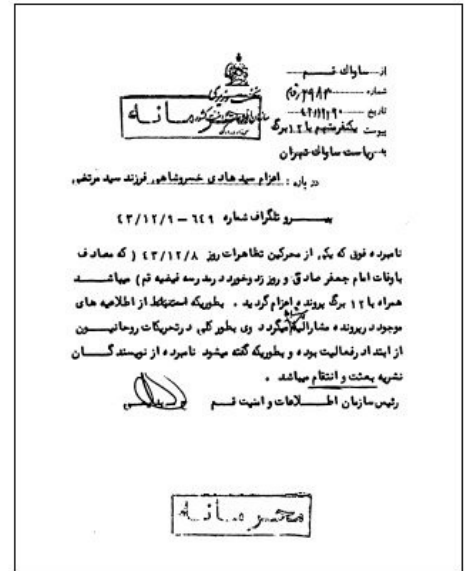 از ساواك قـــم
نخست وزیری
شماره ۲۹۸۳/ق م
سازمان اطلاعات و امنیت کشور
تاریخ
محـرمــانـه
پیوست یکنفر متهم با ۱۲ برگ
به ریاست ساواك تهران
در باره : اعزام سید هادی خسروشاهی فرزند سید مرتضی
پیـــرو تلگراف شماره ۶۴۹ – ۴۳/۱۲/۹
نامبرده فوق که یکی از محرکین تظاهرات روز ۴۳/۱۲/۸ ( که مصادف
باوفات امام جعفر صادق و روز زد وخورد در مدرسه فیضیه قم ) میباشـــد
همراه با ۱۲ برگ پرونده اعزام گردید . بطوریکه از اطلاعیه های
موجود در پرونده مشارالیه میگردد وی بطور کلی در تحریکات روحانیــون
از ابتدا در فعالیت بوده و بطوریکه گفته میشود نامبرده از نویسندگـــان
نشریه بعثت و انتقام میباشد .
رئیس سازمان اطـــلاعات و امنیت قـــم
محـرمــانـه